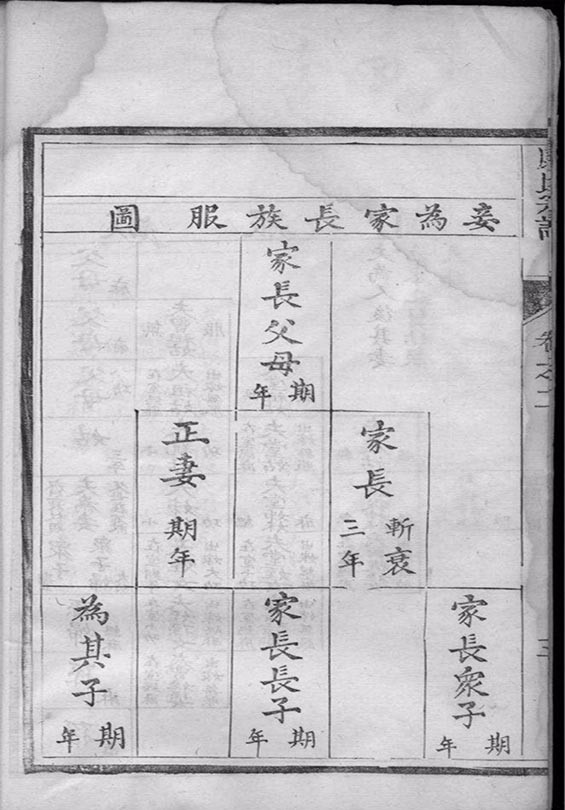 妾為家長族服圖
家長父母
期年
家長
斬衰
三年
正妻
期年
家長眾子
期年
家長長子
期年
為其子
期年
卷之二
三